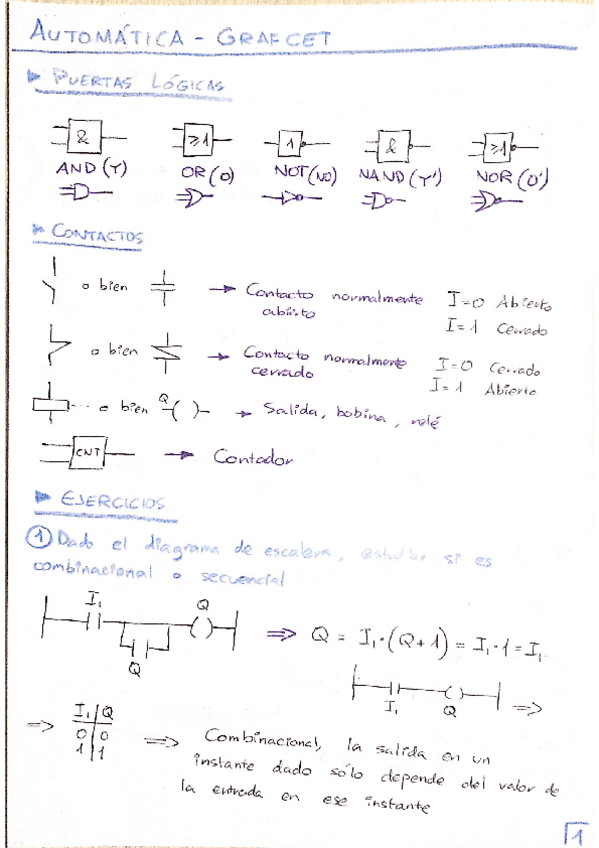 AUTOMÁTICA - GRAFCET
PUERTAS LÓGICAS
& ≥1 1 & ≥1
AND (Y) OR (O) NOT (NO) NAND (Y') NOR (O')
CONTACTOS
o bien → Contacto normalmente abierto I=0 Abierto
I=1 Cerrado
o bien → Contacto normalmente cerrado I=0 Cerrado
I=1 Abierto
o bien Q -( )- → Salida, bobina, relé
CNT → Contador
EJERCICIOS
1 Dado el diagrama de escalera, estudiar si es
combinacional o secuencial
I₁ Q
Q
⇒ Q = I₁·(Q+1) = I₁·1 = I₁
I₁ Q ⇒
⇒ I₁ | Q
0 | 0
1 | 1
⇒ Combinacional, la salida en un
instante dado sólo depende del valor de
la entrada en ese instante
1